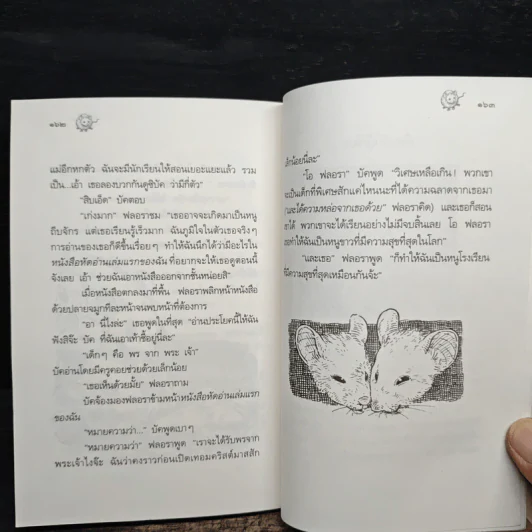 ๑๖๒
แม่อีกหกตัว ฉันจะมีนักเรียนให้สอนเยอะแยะแล้ว รวม
เป็น...เอ้า เธอลองบวกกันดูซิบัค ว่ามีกี่ตัว"
"สิบเอ็ด" บัคตอบ
"เก่งมาก" ฟลอราชม "เธออาจจะเกิดมาเป็นหนู
ถีบจักร แต่เธอเรียนรู้เร็วมาก ฉันภูมิใจในตัวเธอจริงๆ
การอ่านของเธอก็ดีขึ้นเรื่อยๆ ทำให้ฉันนึกได้ว่ามีอะไรใน
หนังสือหัดอ่านเล่มแรกของฉัน ที่อยากจะให้เธอดูตอนนี้
จังเลย เอ้า ช่วยฉันเอาหนังสือออกจากชั้นหน่อยสิ"
เมื่อหนังสือตกลงมาที่พื้น ฟลอราพลิกหน้าหนังสือ
ด้วยปลายจมูกทีละหน้าจนพบหน้าที่ต้องการ
"อา นี่ไงล่ะ" เธอพูดในที่สุด "อ่านประโยคนี้ให้ฉัน
ฟังสิจ๊ะ บัค ที่ฉันเอาเท้าชี้อยู่นี่ละ"
"เด็กๆ คือ พร จาก พระ เจ้า"
บัคอ่านโดยมีครูคอยช่วยด้วยเล็กน้อย
"เธอเห็นด้วยมั้ย" ฟลอราถาม
บัคจ้องมองฟลอราข้ามหน้าหนังสือหัดอ่านเล่มแรก
ของฉัน
"หมายความว่า..." บัคพูดเบาๆ
"หมายความว่า" ฟลอราพูด "เราจะได้รับพรจาก
พระเจ้าไงจ๊ะ ฉันว่าคงราวก่อนเปิดเทอมคริสต์มาสสัก
๑๖๓
เล็กน้อยนี่ละ"
"โอ ฟลอรา" บัคพูด "วิเศษเหลือเกิน! พวกเขา
จะเป็นเด็กที่พิเศษสักแค่ไหนนะที่ได้ความฉลาดจากเธอมา
(และได้ความหล่อจากเธอด้วย ฟลอราคิด) และเธอก็สอน
เขาได้ พวกเขาจะได้เรียนอย่างไม่มีจบสิ้นเลย โอ ฟลอรา
เธอทำให้ฉันเป็นหนูขาวที่มีความสุขที่สุดในโลก"
"และเธอ" ฟลอราพูด "ก็ทำให้ฉันเป็นหนูโรงเรียน
ที่มีความสุขที่สุดเหมือนกันจ้ะ"